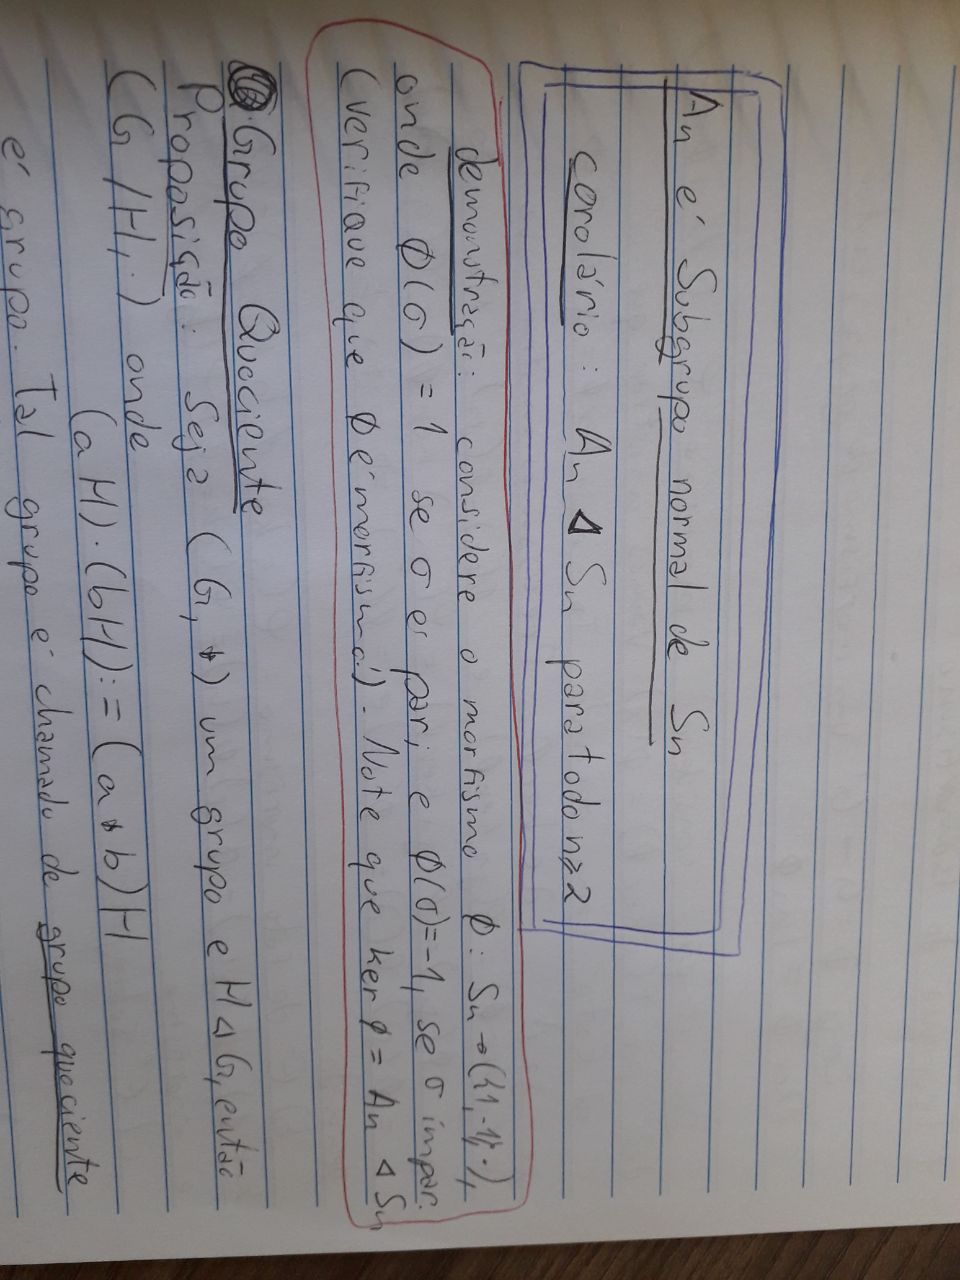 An é Subgrupo normal de Sn
corolário: An ⊲ Sn para todo n≥2
demonstração: considere o morfismo ϕ: Sn → ({1,-1},·),
onde ϕ(σ) = 1 se σ é par, e ϕ(σ)=-1, se σ impar.
(verifique que ϕ é morfismo!). Note que ker ϕ = An ⊲ Sn
Grupo Quociente
Proposição: Seja (G, *) um grupo e H ⊲ G, então
(G/H,·) onde
(aH)·(bH):=(a*b)H
é grupo. Tal grupo é chamado de grupo quociente